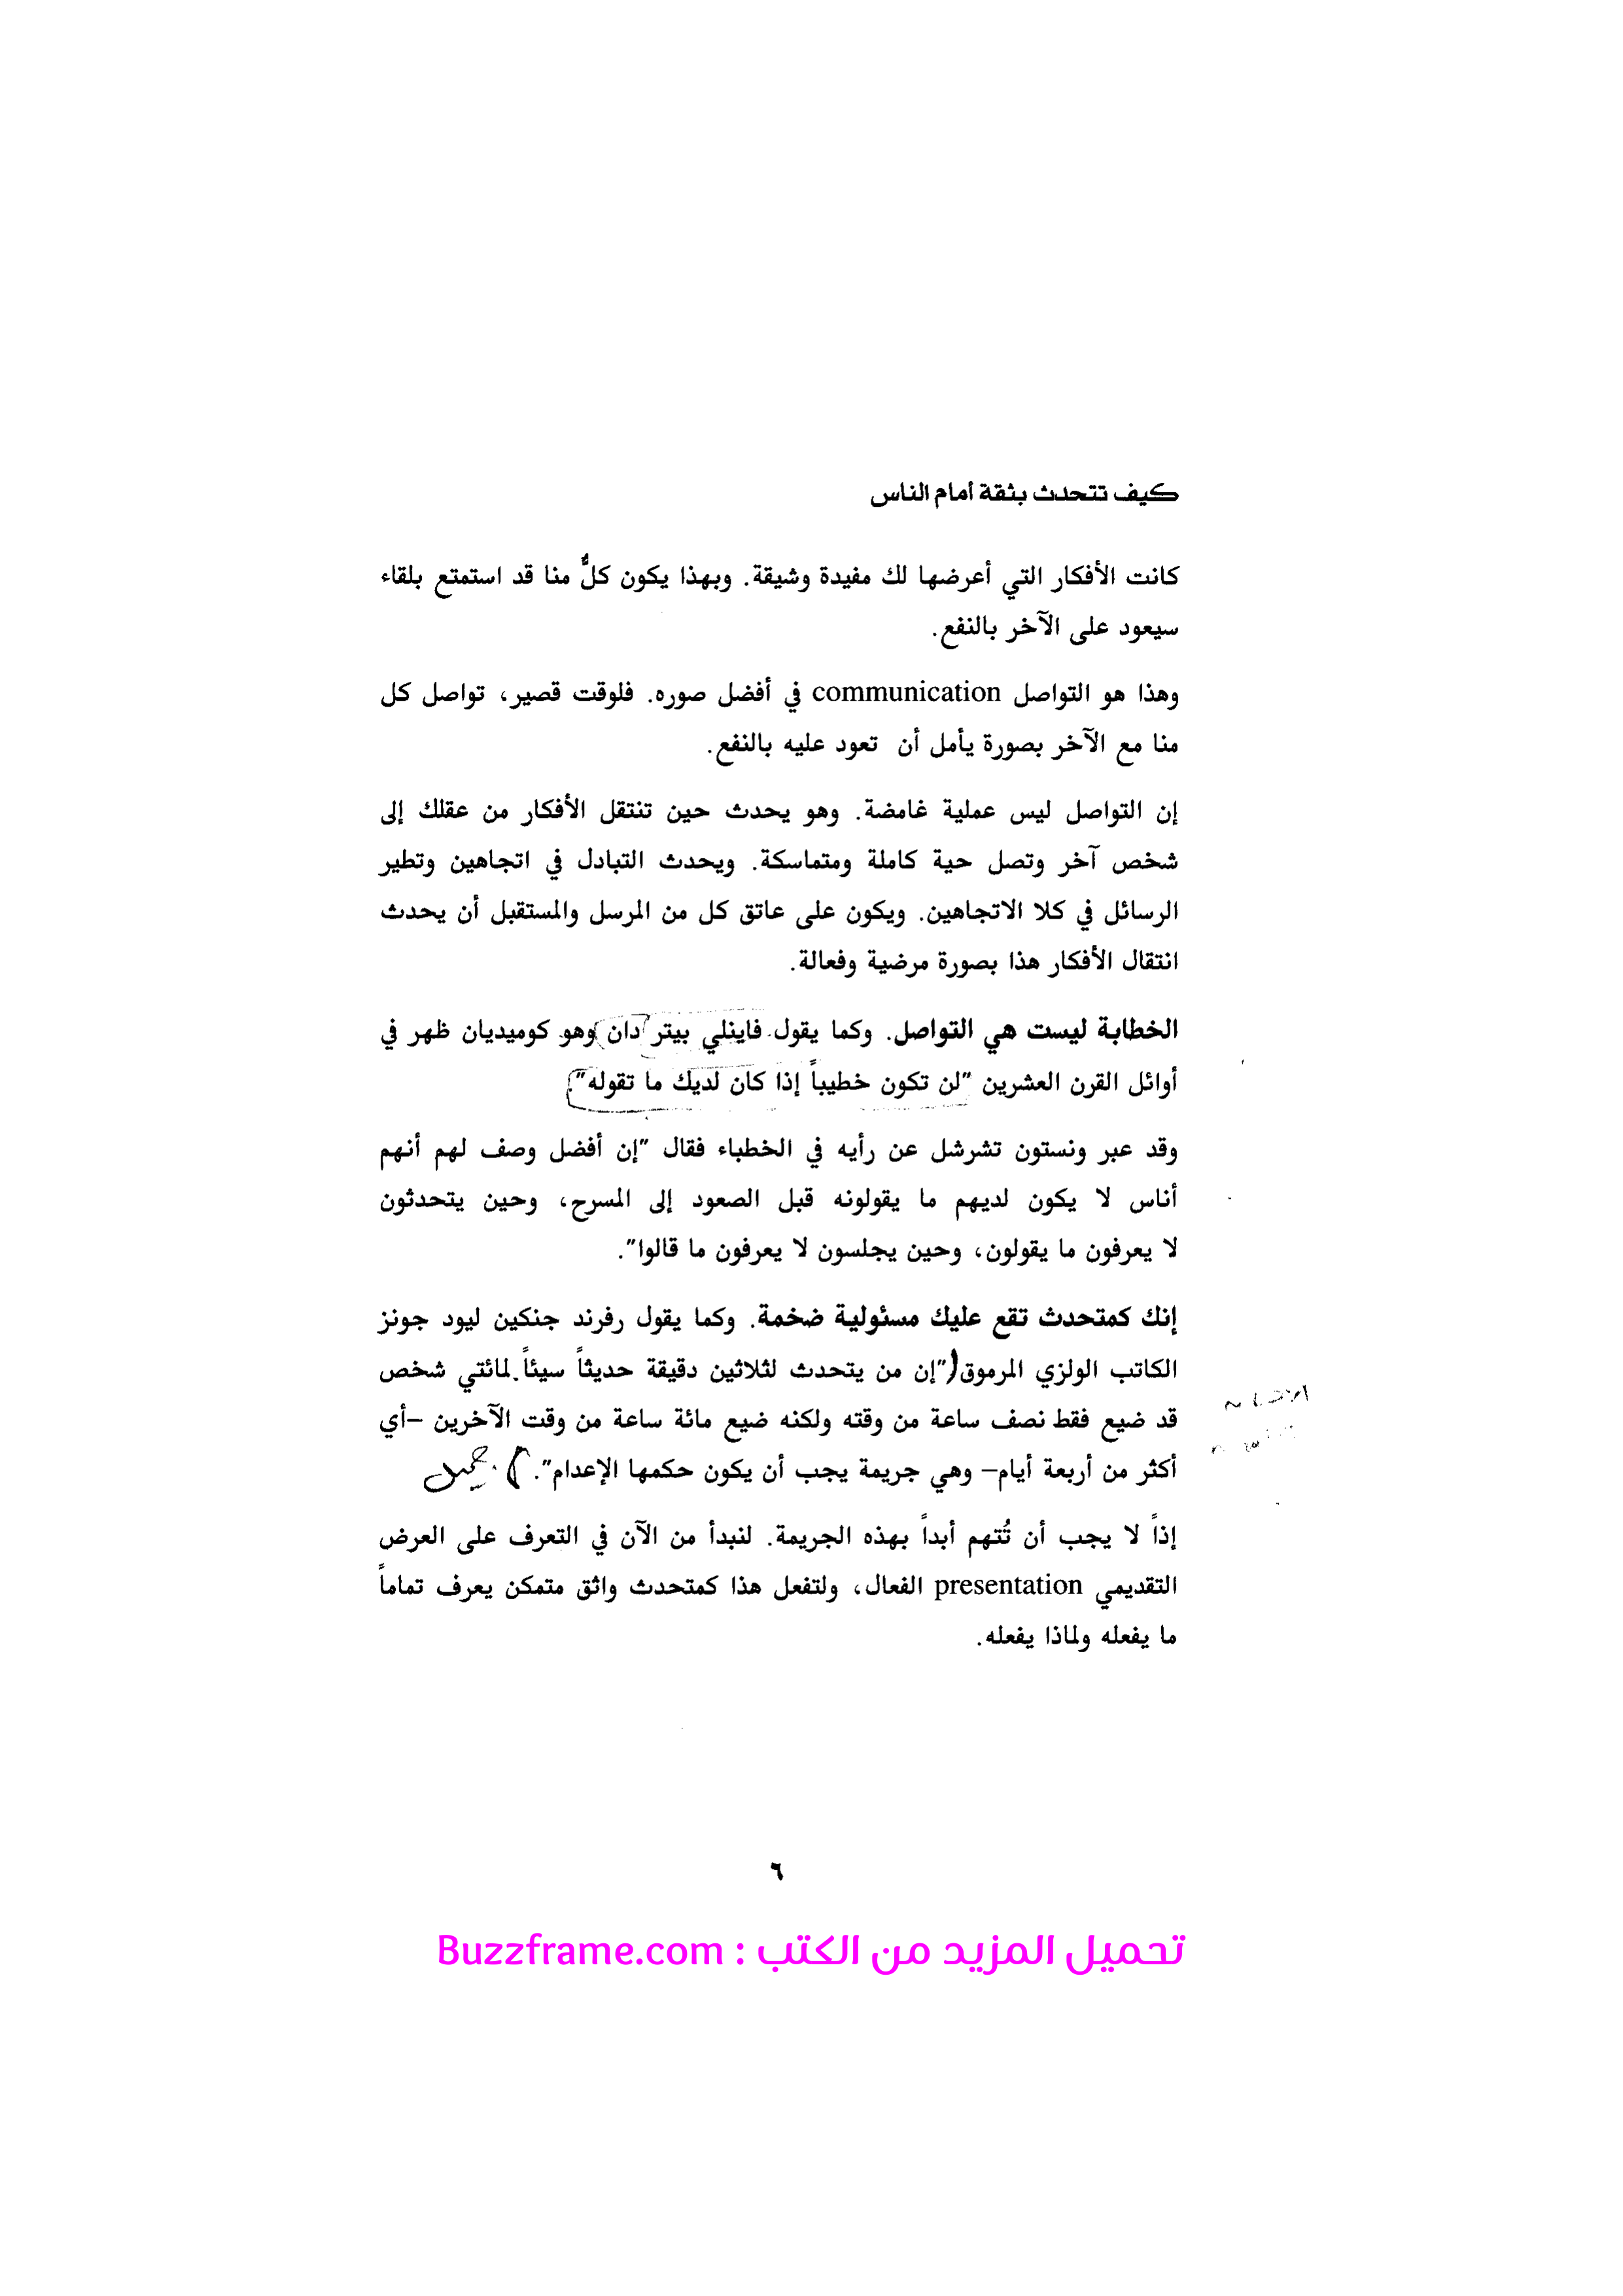 كيف تتحدث بثقة أمام الناس
كانت الأفكار التي أعرضها لك مفيدة وشيقة. وبهذا يكون كلٌّ منا قد استمتع بلقاء
سيعود على الآخر بالنفع.
وهذا هو التواصل communication في أفضل صوره. فلوقت قصير، تواصل كل
منا مع الآخر بصورة يأمل أن تعود عليه بالنفع.
إن التواصل ليس عملية غامضة. وهو يحدث حين تنتقل الأفكار من عقلك إلى
شخص آخر وتصل حية كاملة ومتماسكة. ويحدث التبادل في اتجاهين وتطير
الرسائل في كلا الاتجاهين. ويكون على عاتق كل من المرسل والمستقبل أن يحدث
انتقال الأفكار هذا بصورة مرضية وفعالة.
الخطابة ليست هي التواصل. وكما يقول فاينلي بيتر دان وهو كوميديان ظهر في
أوائل القرن العشرين "لن تكون خطيباً إذا كان لديك ما تقوله".
وقد عبر ونستون تشرشل عن رأيه في الخطباء فقال "إن أفضل وصف لهم أنهم
أناس لا يكون لديهم ما يقولونه قبل الصعود إلى المسرح، وحين يتحدثون
لا يعرفون ما يقولون، وحين يجلسون لا يعرفون ما قالوا".
إنك كمتحدث تقع عليك مسئولية ضخمة. وكما يقول رفرند جنكين ليود جونز
الكاتب الولزي المرموق "إن من يتحدث لثلاثين دقيقة حديثاً سيئاً لمائتي شخص
قد ضيع فقط نصف ساعة من وقته ولكنه ضيع مائة ساعة من وقت الآخرين –أي
أكثر من أربعة أيام– وهي جريمة يجب أن يكون حكمها الإعدام". جميل
إذاً لا يجب أن تُتهم أبداً بهذه الجريمة. لنبدأ من الآن في التعرف على العرض
التقديمي presentation الفعال، ولتفعل هذا كمتحدث واثق متمكن يعرف تماماً
ما يفعله ولماذا يفعله.
٦
تحميل المزيد من الكتب : Buzzframe.com